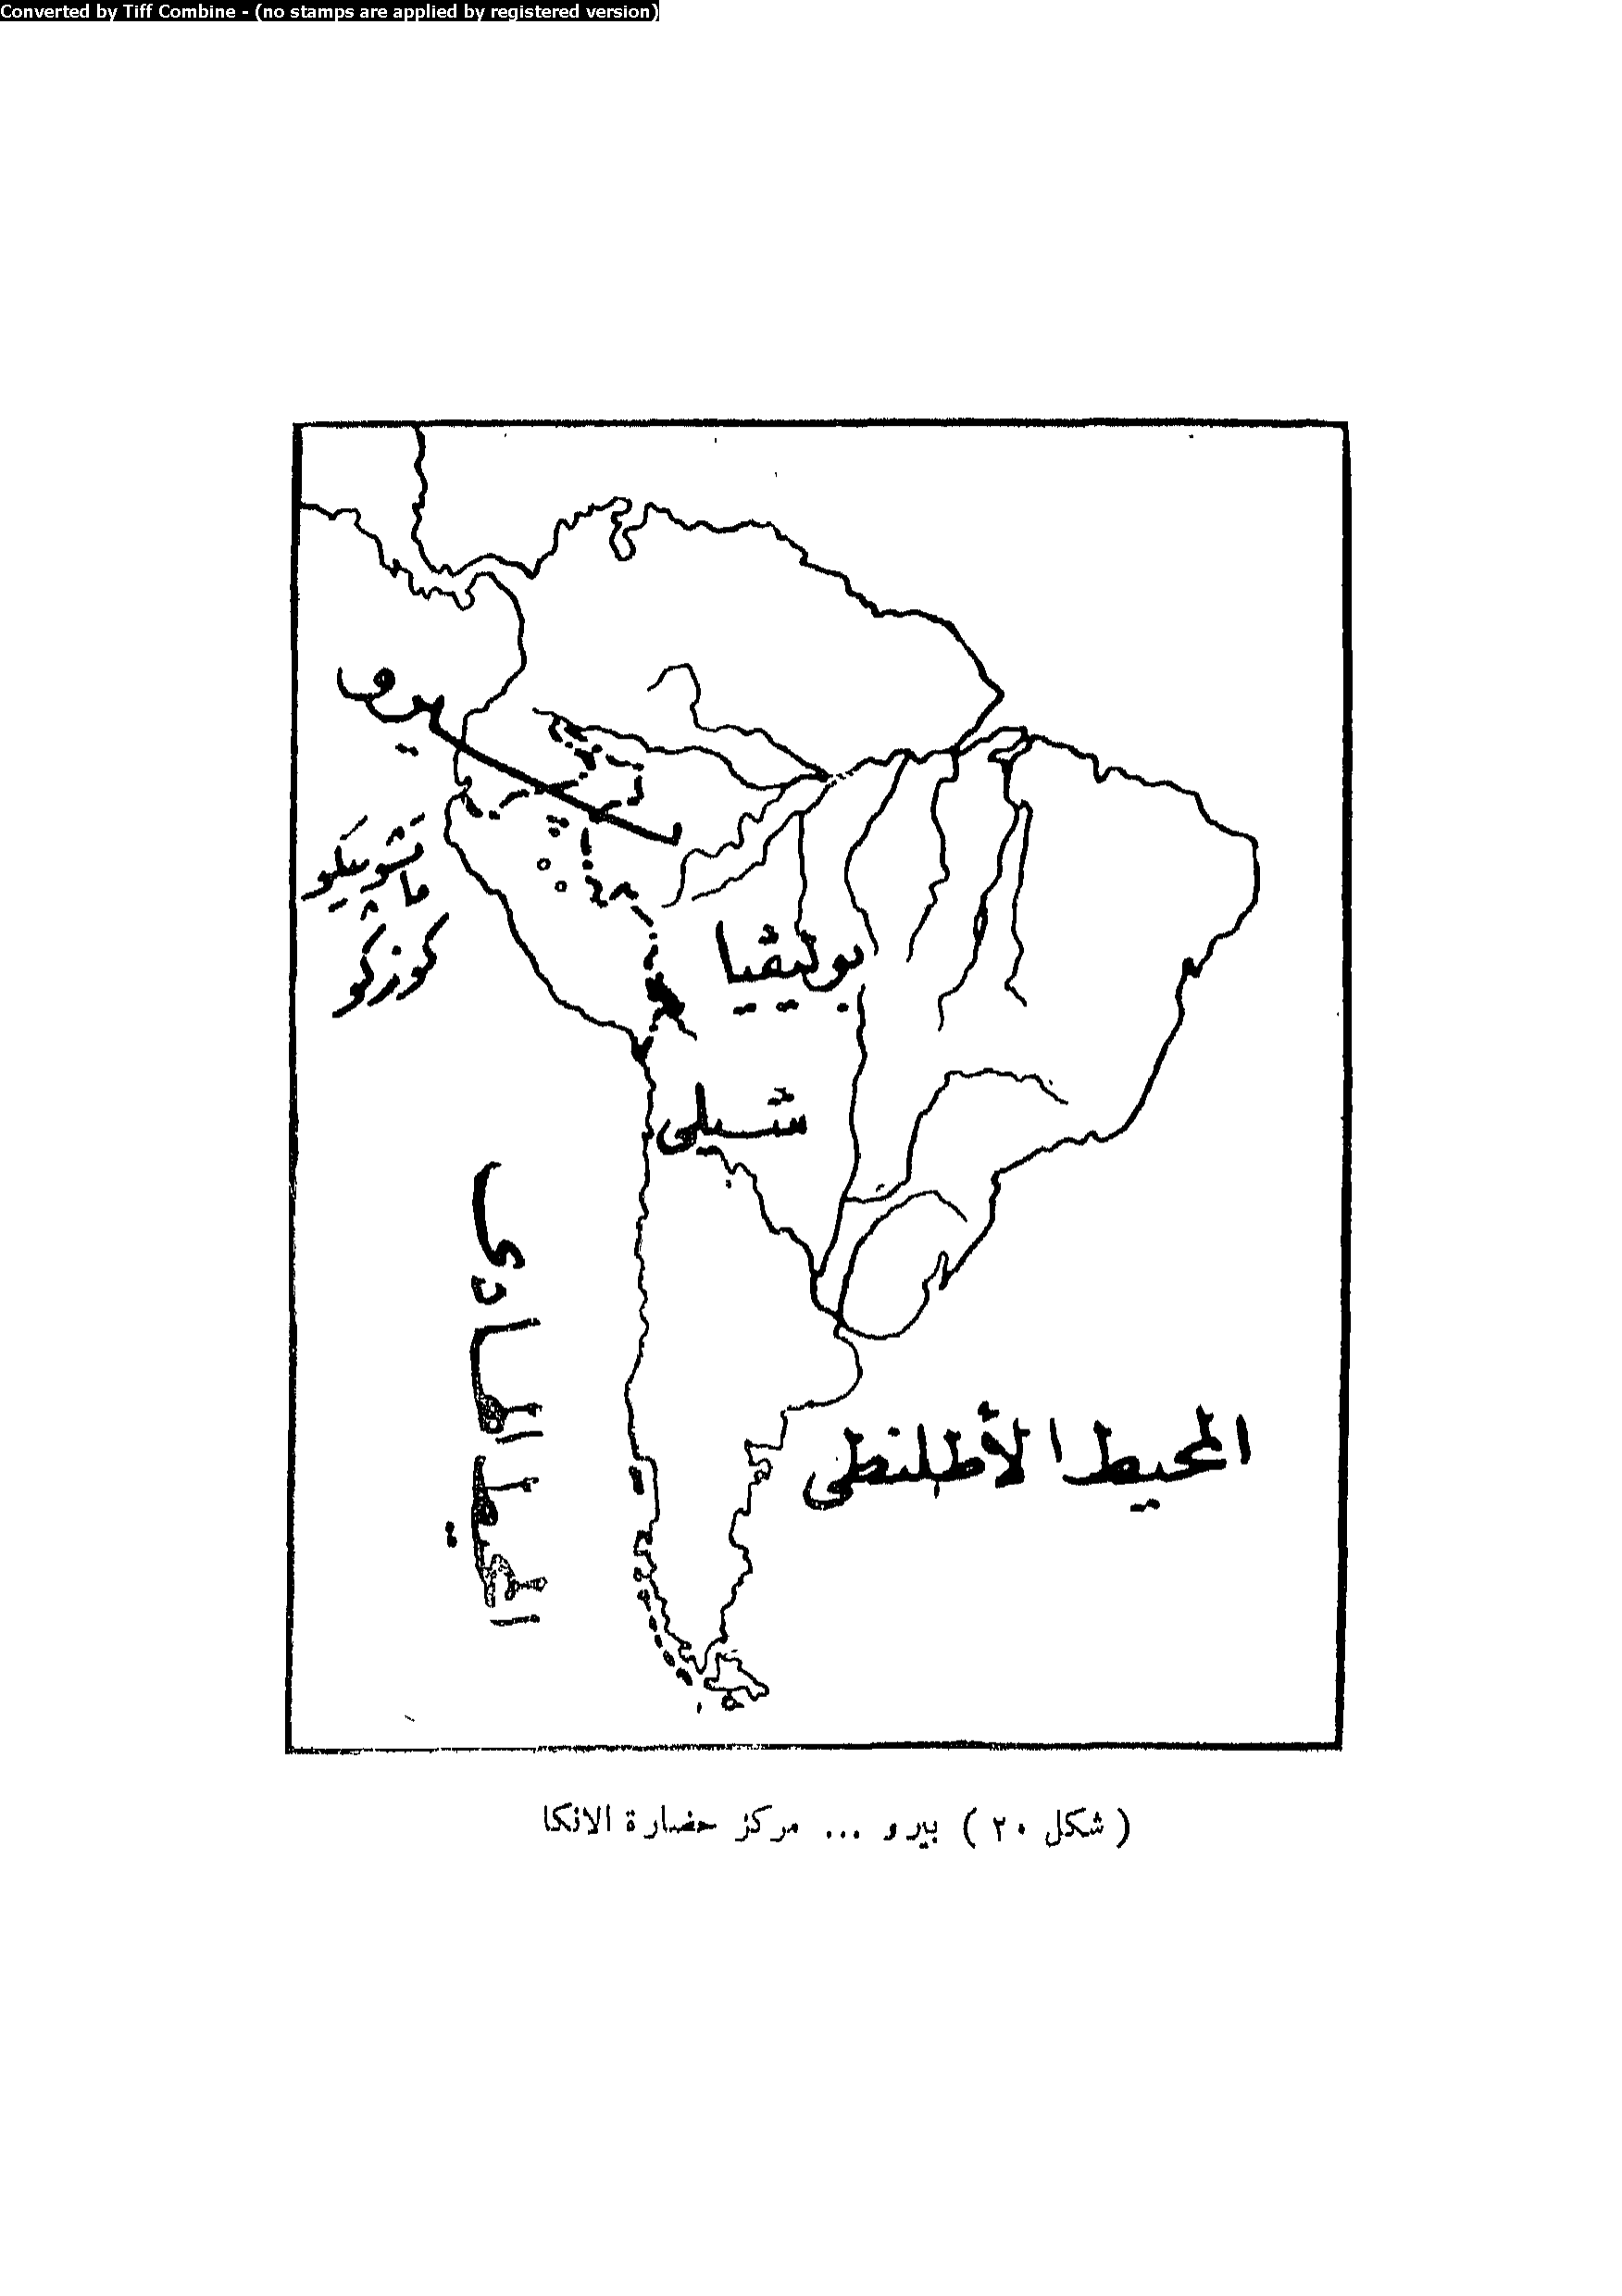 Converted by Tiff Combine - (no stamps are applied by registered version)
بيرو
كوزكو
بوليڤيا
شيلى
المحيط الهادى
المحيط الأطلنطى
( شكل ٢٠ ) بيرو ... مركز حضارة الانكا